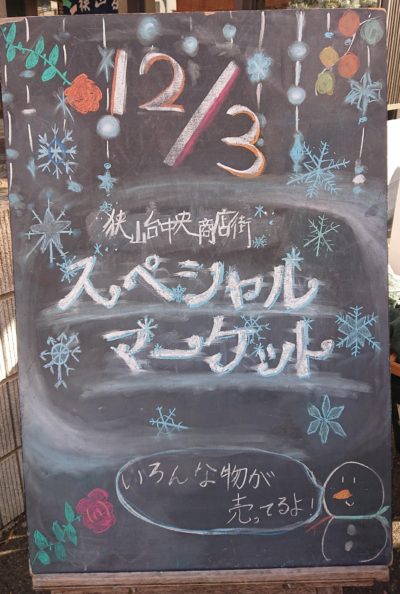 12/3
狭山台中央商店街
スペシャル
マーケット
いろんな物が
売ってるよ!